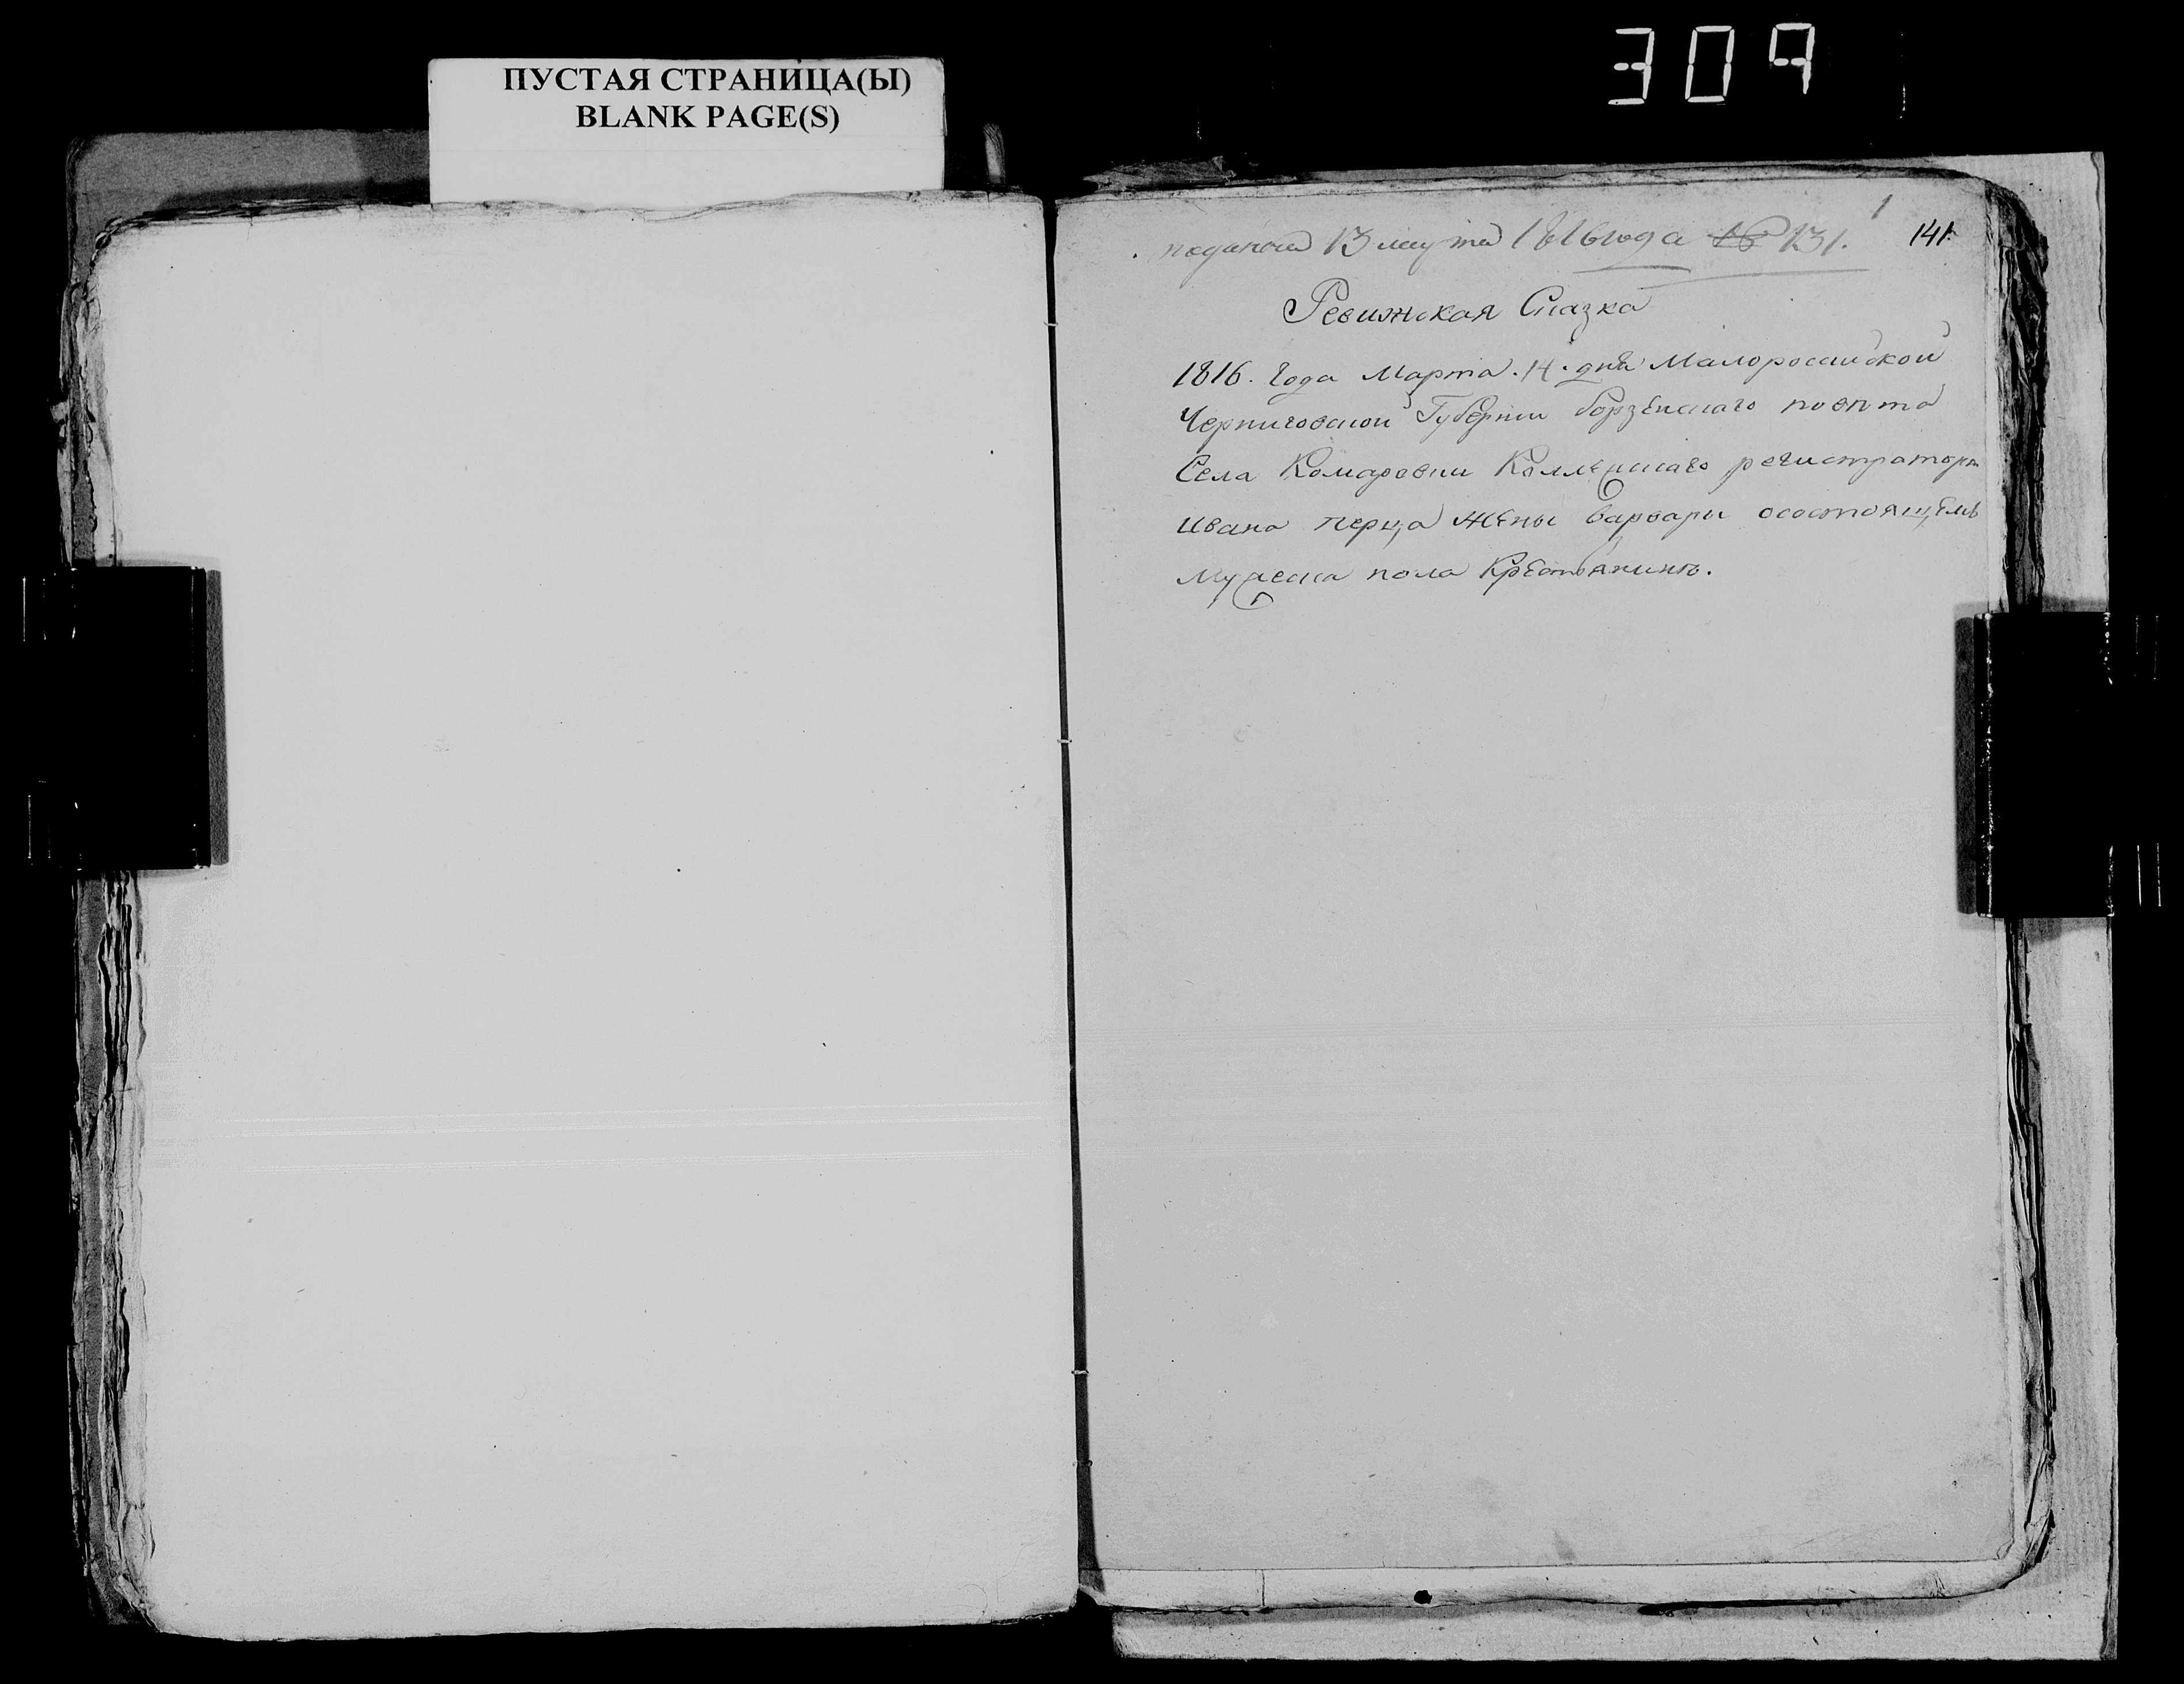 ПУСТАЯ СТРАНИЦА(Ы)
BLANK PAGE(S)
309
1
141.
13 марта 1816 года № 131.
Ревижская Сказка
1816. Года Марта. 14. дня Малоросийской
Черниговской Губернии борзенскаго повѣта
Села Комаровки Коллежскаго регистратора
Ивана перца Жены варвари осостоящемъ
Мужеска пола Крестьянинѣ.